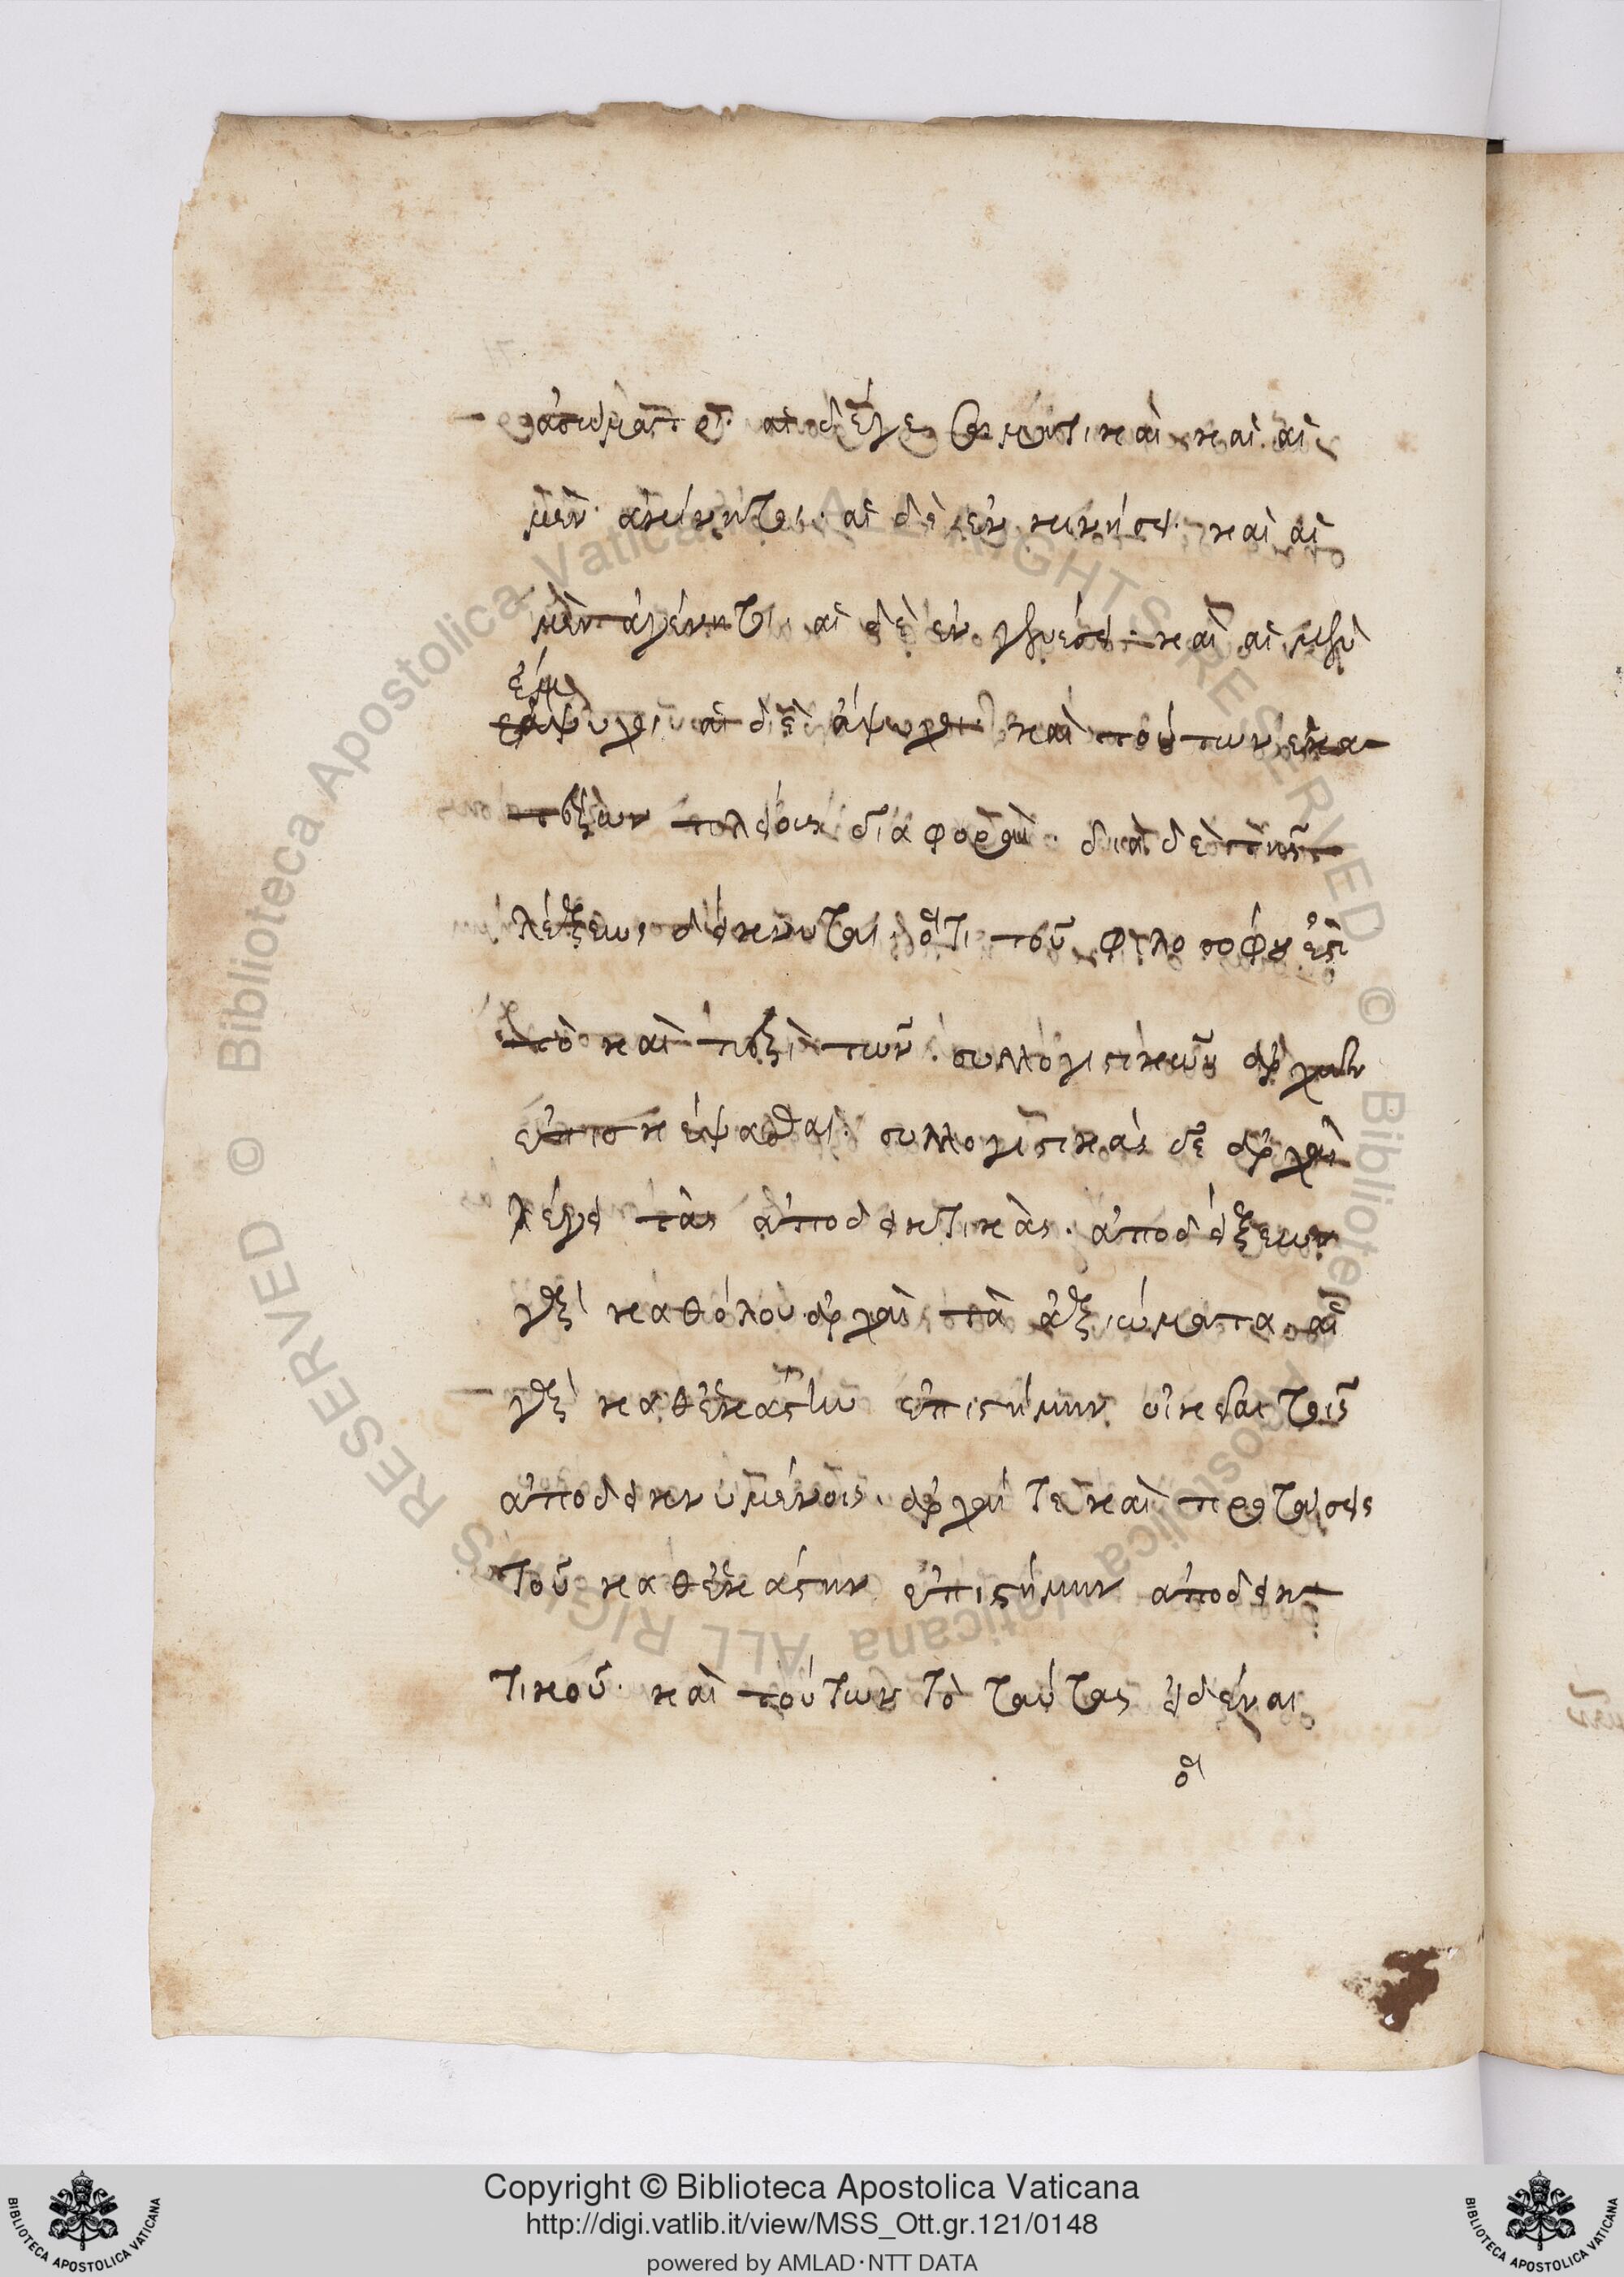 ἀσώματοι· αἱ δέ γε σωματικαὶ καὶ αἱ
μὲν ἀκίνητοι· αἱ δὲ ἐν κινήσει· καὶ αἱ
μὲν ἀγένητοι αἱ δὲ ἐν γενέσει· καὶ αἱ μὲν
ἔμ
ψυχοι αἱ δὲ ἄψυχοι καὶ τούτων ἑκα
πλείους διαφοραί· διὰ δὲ τῆς
λέξεως δείκνυται, ὅτι τοῦ φιλοσόφου ἐστὶ
τὸ καὶ περὶ τῶν συλλογιστικῶν ἀρχῶν
ἐπισκέψασθαι· συλλογιστικὰς δὲ ἀρχὰς
λέγει τὰς ἀποδεικτικάς· ἀποδείξεων
γὰρ καθόλου ἀρχαὶ τὰ ἀξιώματα αἱ
γὰρ καθ' ἑκάστην ἐπιστήμην οἰκεῖαι τοῖς
ἀποδεικνυμένοις, ἀρχαί τε καὶ προτάσεις
τοῦ καθ' ἑκάστην ἐπιστήμην ἀποδεικ
τικοῦ· καὶ τούτων τὸ ταύτας εἰδέναι
Copyright © Biblioteca Apostolica Vaticana
http://digi.vatlib.it/view/MSS_Ott.gr.121/0148
powered by AMLAD·NTT DATA
BIBLIOTECA APOSTOLICA VATICANA
BIBLIOTECA APOSTOLICA VATICANA
© Biblioteca Apostolica Vaticana ALL RIGHTS RESERVED © Biblioteca Apostolica Vaticana ALL RIGHTS RESERVED